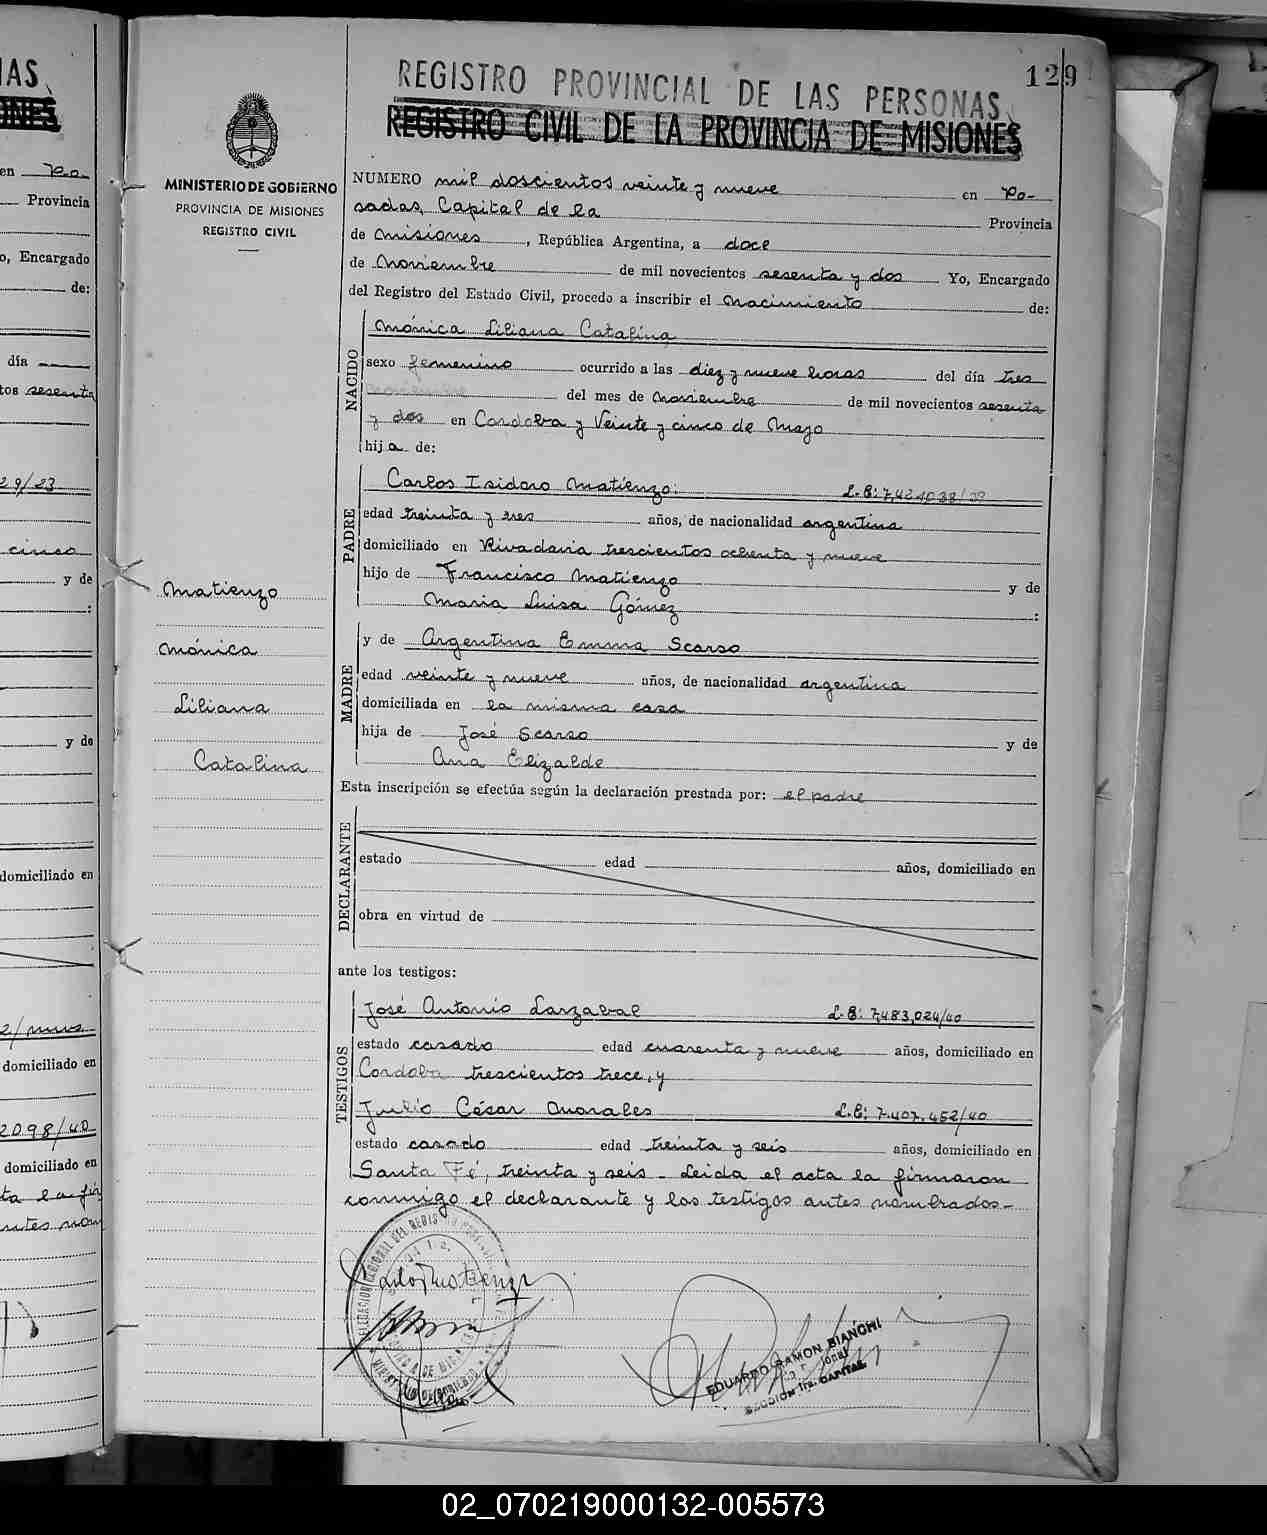 IAS
ONES
en Po-
Provincia
o, Encargado
de:
día
tos sesenta
29/23
cinco
y de
:
y de
domiciliado en
domiciliado en
2098/40
domiciliado en
ta la fir
antes nom
129
REGISTRO PROVINCIAL DE LAS PERSONAS
REGISTRO CIVIL DE LA PROVINCIA DE MISIONES
MINISTERIO DE GOBIERNO
PROVINCIA DE MISIONES
REGISTRO CIVIL
Matienzo
Mónica
Liliana
Catalina
NUMERO mil doscientos veinte y nueve en Po-
sadas, Capital de la Provincia
de Misiones, República Argentina, a doce
de Noviembre de mil novecientos sesenta y dos Yo, Encargado
del Registro del Estado Civil, procedo a inscribir el Nacimiento de:
NACIDO
Mónica Liliana Catalina
sexo femenino ocurrido a las diez y nueve horas del día tres
del mes de Noviembre de mil novecientos sesenta
y dos en Cordoba y Veinte y cinco de Mayo
hija de:
PADRE
Carlos Isidoro Matienzo: L.E:
edad treinta y tres años, de nacionalidad argentina
domiciliado en Rivadavia trescientos ochenta y nueve
hijo de Francisco Matienzo y de
Maria Luisa Gómez :
MADRE
y de Argentina Emma Scarso
edad veinte y nueve años, de nacionalidad argentina
domiciliada en la misma casa
hija de José Scarso y de
Ana Elizalde
Esta inscripción se efectúa según la declaración prestada por: el padre
DECLARANTE
estado edad años, domiciliado en
obra en virtud de
ante los testigos:
TESTIGOS
José Antonio Larzabal L.E: 7,483,024/40
estado casado edad cuarenta y nueve años, domiciliado en
Cordoba trescientos trece, y
Julio César Morales L.E: 7.407.452/40
estado casado edad treinta y seis años, domiciliado en
Santa Fé, treinta y seis - Leida el acta la firmaron
conmigo el declarante y los testigos antes nombrados-
EDUARDO RAMON BIANCHI
SECCION 1ra. CAPITAL
02_070219000132-005573